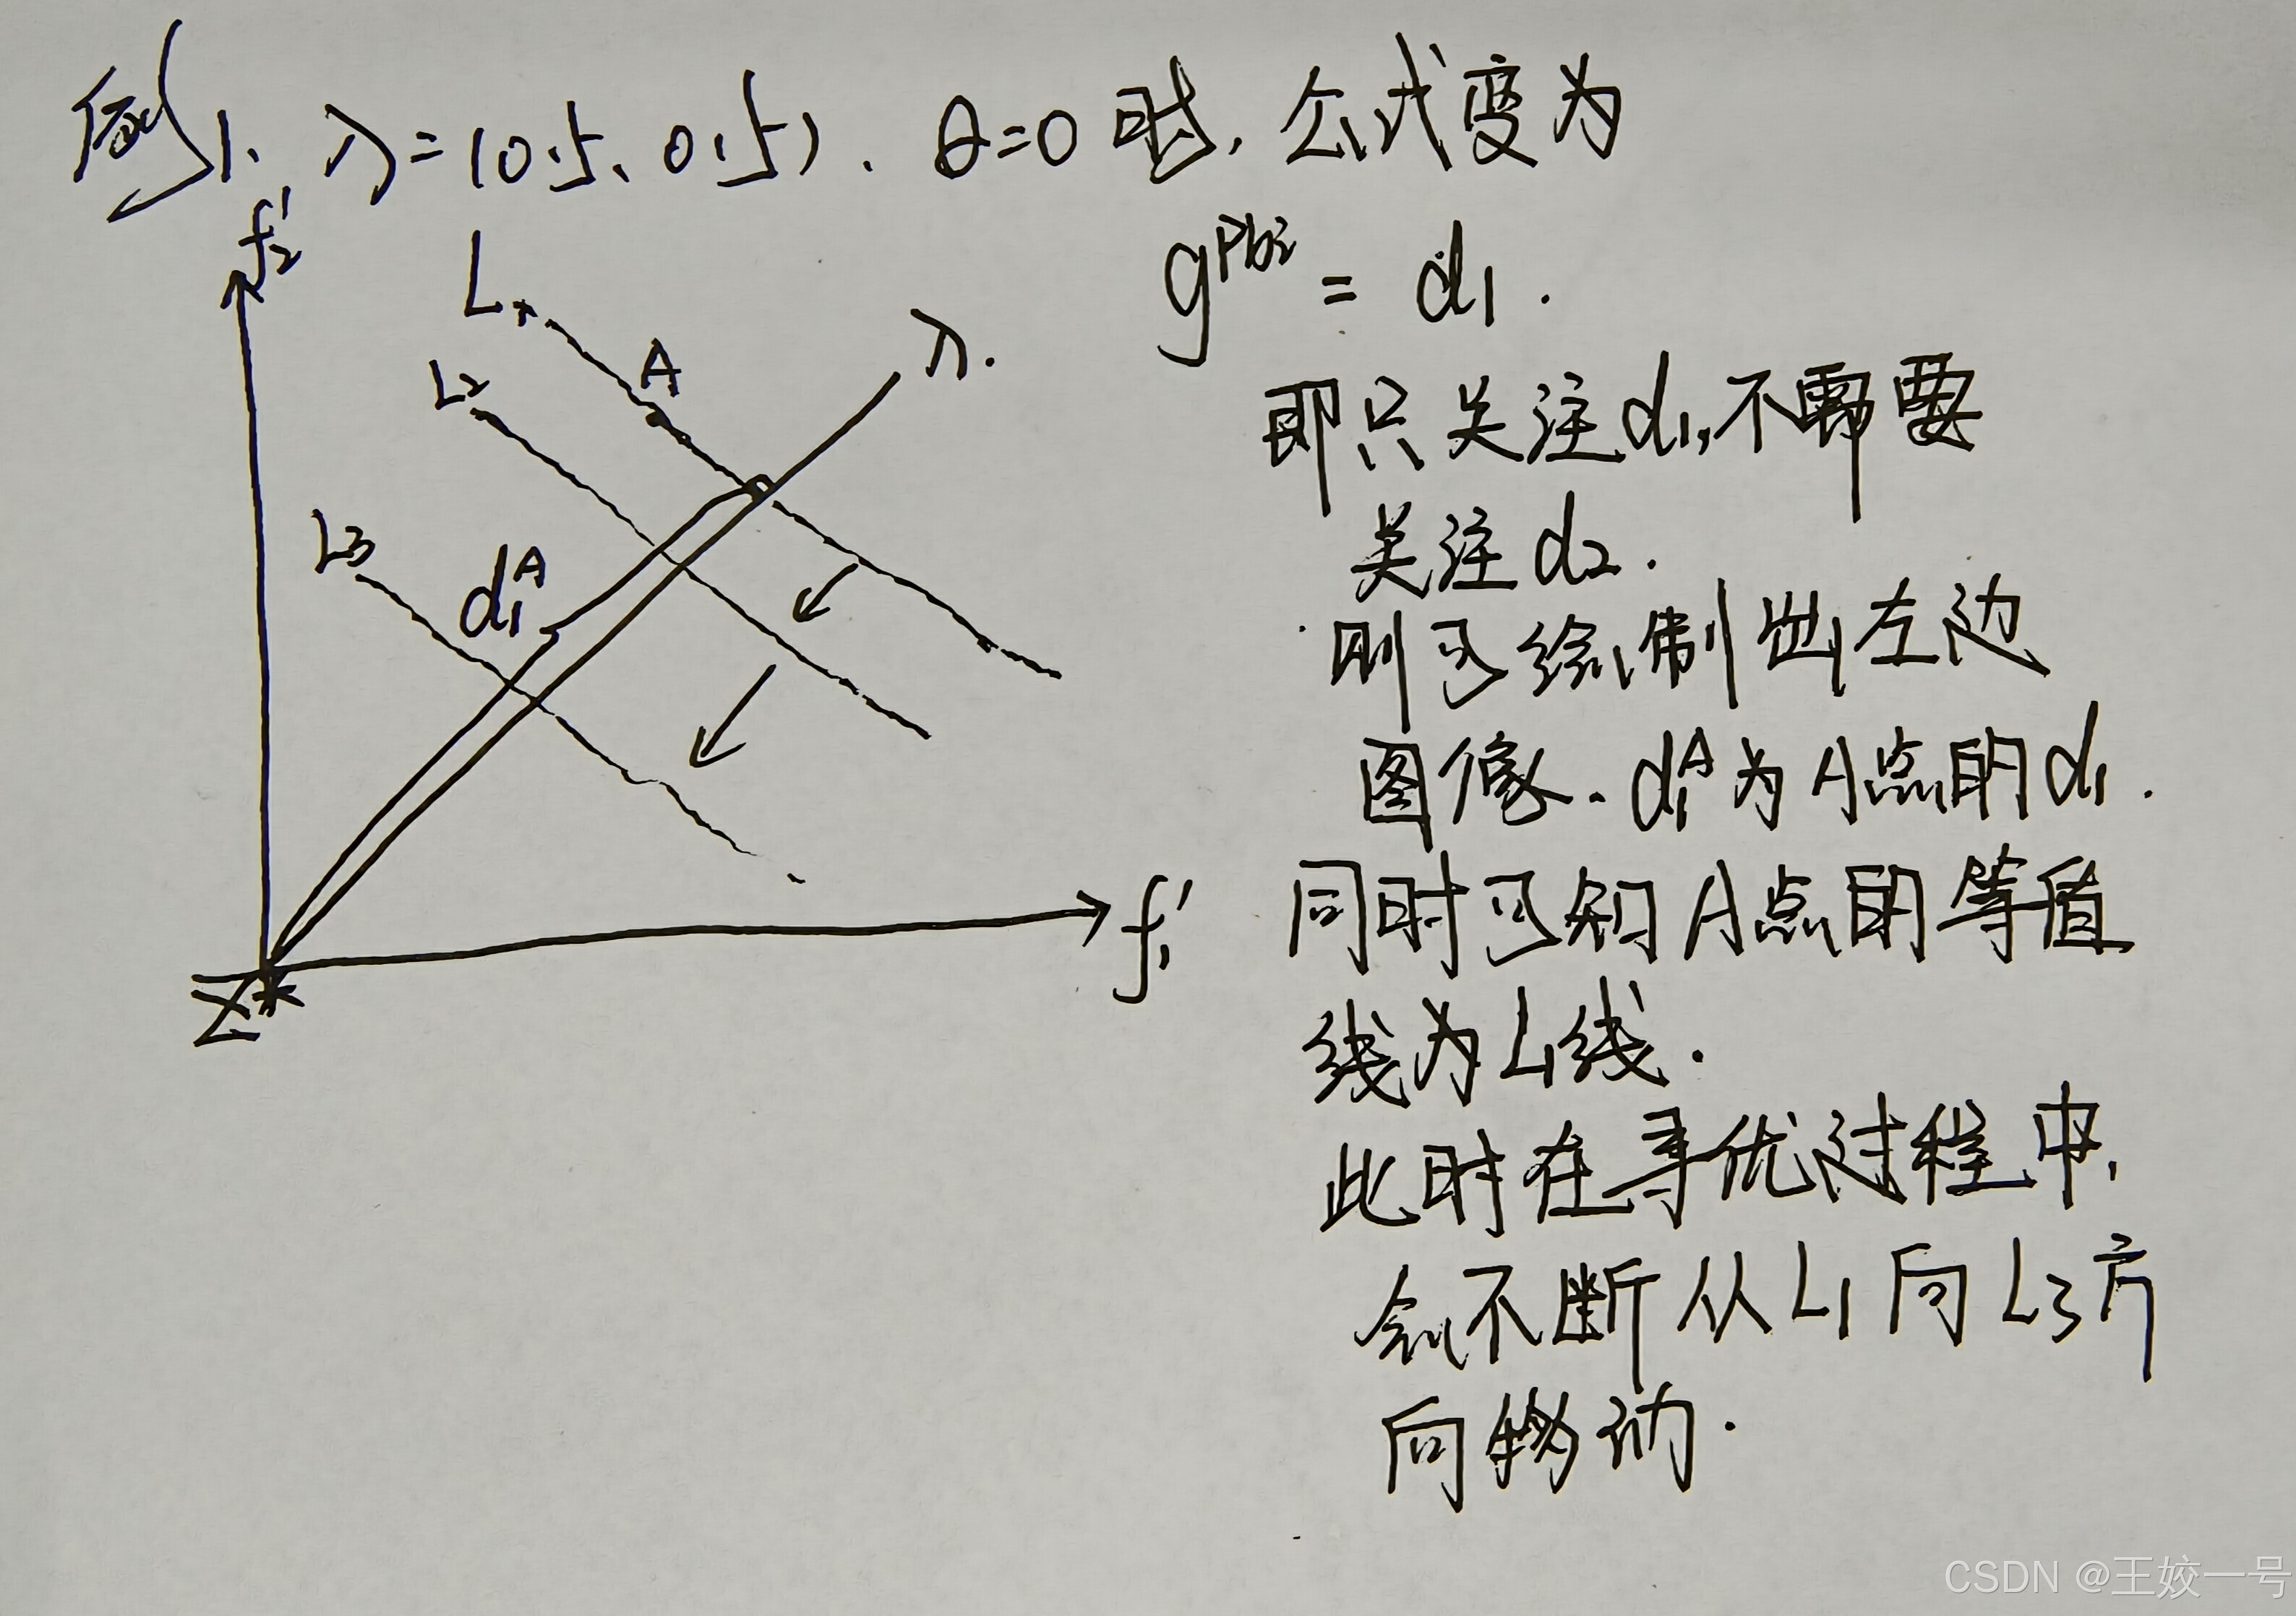 例1、λ=(0.5、0.5). θ=0 时, 公式变为
g^{pbi} = d₁.
即只关注d₁,不需要
关注d₂.
则可绘制出左边
图像. d₁ᴬ为A点的d₁.
同时可知A点的等值
线为L₁线.
此时在寻优过程中,
会不断从L₁向L₃方
向移动.
f₂'
L₁
A
λ.
L₂
L₃
d₁ᴬ
f₁'
Z*
CSDN @王姣一号